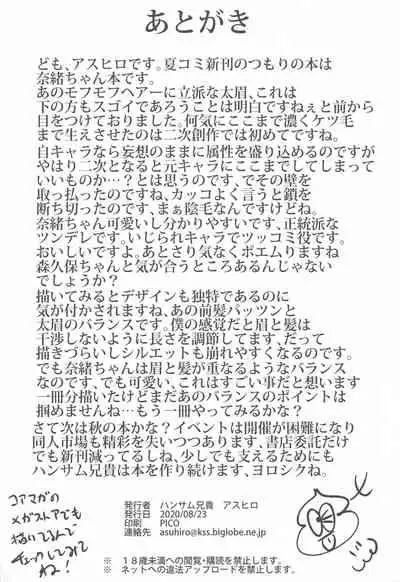 あとがき
ども、アスヒロです。夏コミ新刊のつもりの本は
奈緒ちゃん本です。
あのモフモフヘアーに立派な太眉、これは
下の方もスゴイであろうことは明白ですねぇと前から
目をつけておりました。何気にここまで濃くケツ毛
まで生えさせたのは二次創作では初めてですね。
自キャラなら妄想のままに属性を盛り込めるのですが
やはり二次となると元キャラにここまでしてしまって
いいものか…?とは思うのです、でその壁を
取っ払ったのですね、カッコよく言うと鎖を
断ち切ったのです、まぁ陰毛なんですけどね。
奈緒ちゃん可愛いし分かりやすいです、正統派な
ツンデレです。いじられキャラでツッコミ役です。
おいしいですよ。あとさり気なくポエムりますね
森久保ちゃんと気が合うところあるんじゃない
でしょうか?
描いてみるとデザインも独特であるのに
気が付かされますね、あの前髪パッツンと
太眉のバランスです。僕の感覚だと眉と髪は
干渉しないように長さを調節してます、だって
描きづらいしシルエットも崩れやすくなるのです。
でも奈緒ちゃんは眉と髪が重なるようなバランス
なのです、でも可愛い、これはすごい事だと想います
一冊分描いたけどまだあのバランスのポイントは
掴めませんね…もう一冊やってみるかな?
さて次は秋の本かな?イベントは開催が困難になり
同人市場も精彩を失いつつあります、書店委託だけ
でも新刊減ってるしね、少しでも支えるためにも
ハンサム兄貴は本を作り続けます、ヨロシクね。
コアマガの
メガストアでも
描いてるんで
チェックしてみて
ね!
発行者 ハンサム兄貴 アスヒロ
発行日 2020/08/23
印刷 PICO
連絡先 asuhiro@kss.biglobe.ne.jp
※ 18歳未満への閲覧・購読を禁止します。
※ ネットへの違法アップロードを禁止します。